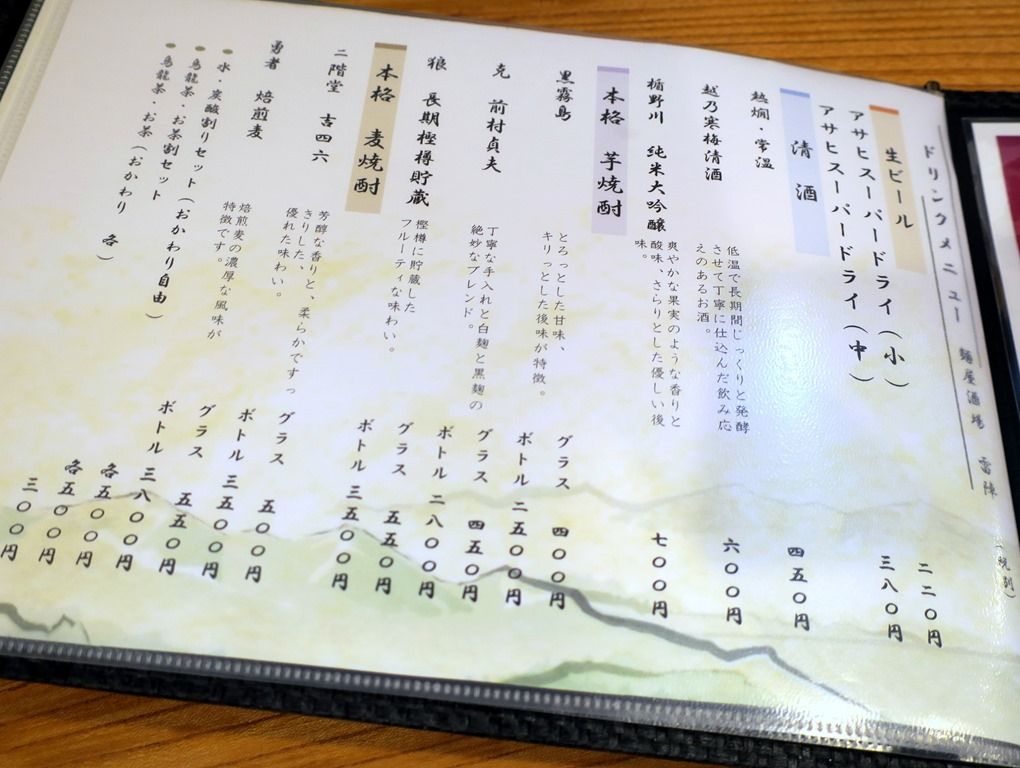 ドリンクメニュー 麺屋酒場 雷陣 (税別)
生ビール
アサヒスーパードライ(小) 二二〇円
アサヒスーパードライ(中) 三八〇円
清酒
熱燗・常温 四五〇円
越乃寒梅清酒
低温で長期間じっくりと発酵
させて丁寧に仕込んだ飲み応
えのあるお酒。
六〇〇円
楯野川 純米大吟醸
爽やかな果実のような香りと
酸味、さらりとした優しい後
味。
七〇〇円
本格 芋焼酎
黒霧島
とろっとした甘味、
キリっとした後味が特徴。
グラス 四〇〇円
ボトル 二五〇〇円
克 前村貞夫
丁寧な手入れと白麹と黒麹の
絶妙なブレンド。
グラス 四五〇円
ボトル 二八〇〇円
狼 長期樫樽貯蔵
樫樽に貯蔵した
フルーティな味わい。
グラス 五五〇円
ボトル 三五〇〇円
本格 麦焼酎
二階堂 吉四六
芳醇な香りと、柔らかですっ
きりした、
優れた味わい。
グラス 五〇〇円
ボトル 三五〇〇円
勇者 焙煎麦
焙煎麦の濃厚な風味が
特徴です。
グラス 五五〇円
ボトル 三八〇〇円
●水・炭酸割りセット(おかわり自由) 各五〇〇円
●烏龍茶・お茶割セット 各五〇〇円
●烏龍茶・お茶(おかわり 各) 三〇〇円